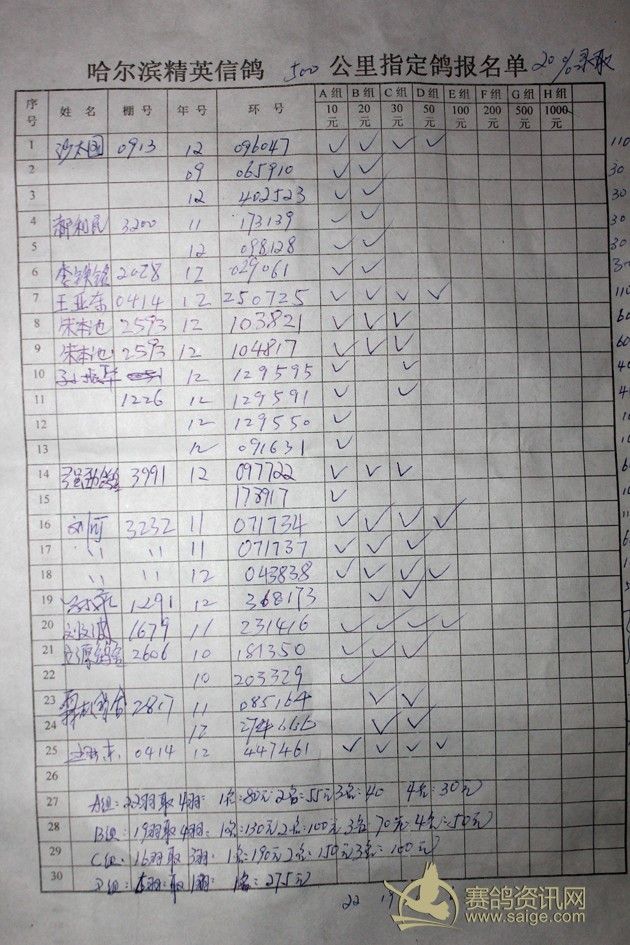 哈尔滨精英信鸽 500 公里指定鸽报名单 20%录取
序号 姓名 棚号 年号 环号 A组10元 B组20元 C组30元 D组50元 E组100元 F组200元 G组500元 H组1000元
1 0913 12 096047 ✓ ✓ ✓ ✓ 110
2 09 065910 ✓ ✓ 30
3 12 402523 ✓ ✓ 30
4 3200 11 173139 ✓ ✓ 30
5 12 098128 ✓ ✓ 30
6 2028 12 029061 ✓ ✓
7 王亚东 0414 12 250725 ✓ ✓ ✓ ✓ 110
8 朱本池 2593 12 103821 ✓ ✓ ✓
9 朱本池 2593 12 104817 ✓ ✓ ✓
10 12 129595 ✓ ✓
11 1226 12 129591 ✓ ✓
12 12 129550 ✓
13 12 091631 ✓
14 3991 12 097722 ✓ ✓ ✓
15 173917 ✓
16 3232 11 071734 ✓ ✓ ✓ ✓
17 〃 〃 11 071737 ✓ ✓ ✓
18 〃 〃 12 043838 ✓ ✓ ✓ ✓
19 1291 12 368173 ✓ ✓
20 1679 11 231416 ✓ ✓ ✓ ✓
21 2606 10 181350 ✓ ✓ ✓
22 10 203329 ✓
23 2817 11 085164 ✓ ✓
24 12 ✓ ✓
25 0414 12 447461 ✓ ✓ ✓ ✓
26
27 A组:22羽取4羽: 1名:80元 2名:55元 3名:40 4名:30元
28 B组:19羽取4羽: 1名:130元 2名:100元 3名70元 4名:50元
29 C组:16羽取3羽: 1名:190元 2名:150元 3名:100元
30 D组: 取1羽: 1名:275元
22 19
赛鸽资讯网
www.saige.com